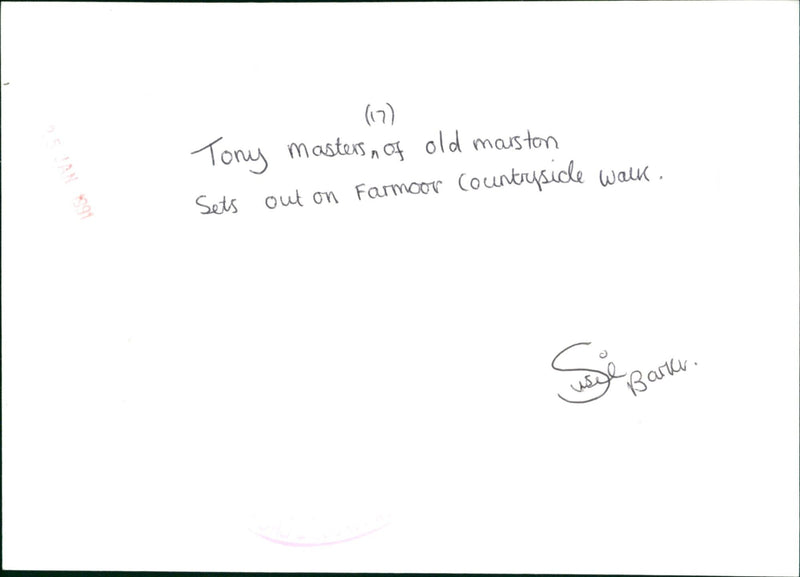 (17)
Tony Masters, of old marston
Sets out on Farmoor Countryside walk.
Susie Barker.
25 JAN 1991